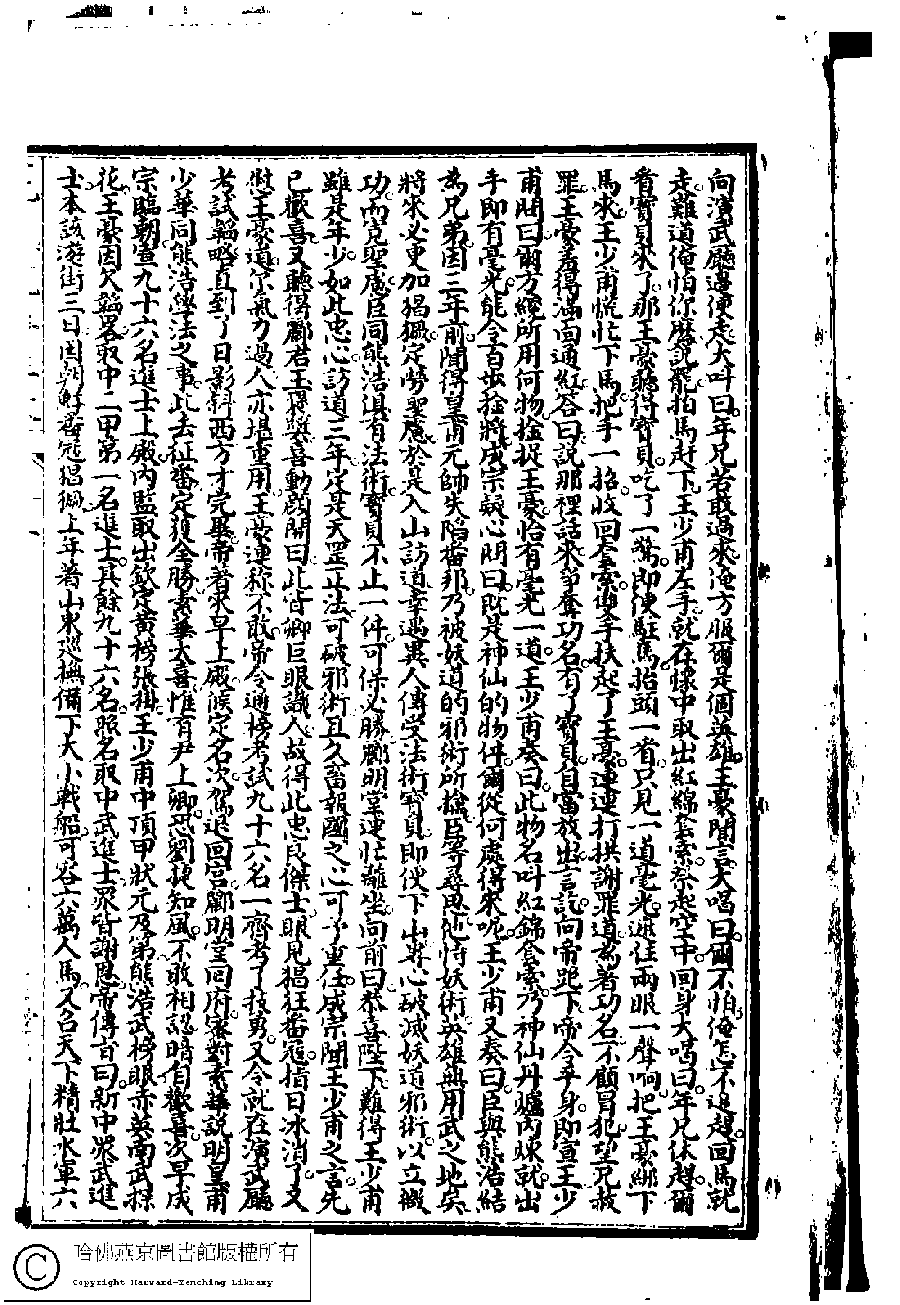 向演武廳邊便走大叫曰年兄若敢過來俺方服爾是個英雄王豪聞言大喝曰爾不怕俺怎不進趕回馬就
走難道俺怕你麽說罷拍馬赶下王少甫左手就在懷中取出紅綿套索祭起空中回身大喝曰年兄休趕爾
看寳貝來了那王豪聽得寳貝吃了一驚即便駐馬抬頭一看只見一道毫光遮住兩眼一聲响把王豪綁下
馬來王少甫慌忙下馬把手一招收回套索雙手扶起了王豪連連打拱謝罪道為著功名不顧冒犯望兄赦
罪王豪羞得滿面通紅答曰說那裡話來弟奪功名有了寳貝自當放出言訖向帝跪下帝令平身即宣王少
甫問曰爾方纔所用何物捡捉王豪恰有毫光一道王少甫奏曰此物名叫紅錦套索乃神仙丹爐内煉就出
手即有毫光能令百步捡將成宗疑心問曰既是神仙的物件爾從何處得來呢王少甫又奏曰臣與熊浩結
為兄弟因三年前聞得皇甫元帥失陷番邦乃被妖道的邪術所捡臣等尋思他恃妖術英雄無用武之地矣
將來必更加猖獗定勞聖慮於是入山訪道幸遇異人傳受法術寳貝即便下山專心破滅妖道邪術以立微
功而寛聖慮臣同熊浩俱有法術寳貝不止一件可保必勝酈明堂連忙離坐向前曰恭喜陛下難得王少甫
雖是年少如此忠心訪道三年定是天罡正法可破邪術且久畜報國之心可予重任成宗聞王少甫之言先
已歡喜又聽得酈君王褒獎喜動顔開曰此皆卿巨眼識人故得此忠良傑士眼見猖狂番冦指日冰消了又
對王豪道尔氣力過人亦堪重用王豪連称不敢帝令通榜考試九十六名一齊考了技勇又令就在演武廳
考試韜略直到了日影斜西方才完畢帝着來早上殿候定名次駕退回宫酈明堂同府密對素華說明皇甫
少華同熊浩學法之事此去征番定獲全勝素華大喜惟有尹上卿恐劉捷知風不敢相認暗自歡喜次早成
宗臨朝宣九十六名進士上殿内監取出欽定黄榜張掛王少甫中頂甲狀元及第熊浩武榜眼赤英南武探
花王豪因欠韜畧取中二甲第一名進士其餘九十六名照名取中武進士眾皆謝恩帝傳旨曰新中眾武進
士本該游街三日因朝鮮番冦猖獗上年著山東巡撫備下大小戰船可容六萬人馬又召天下精壯水軍六
哈佛燕京圖書館版權所有
Copyright Harvard-Yenching Library